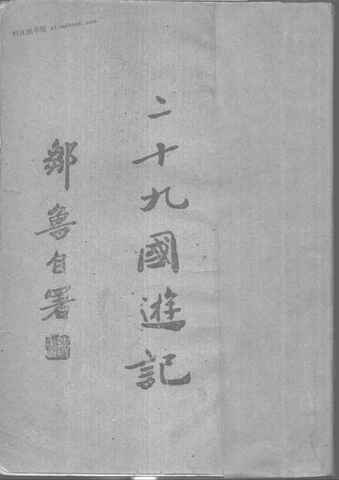 二十九國遊記
鄒魯自署